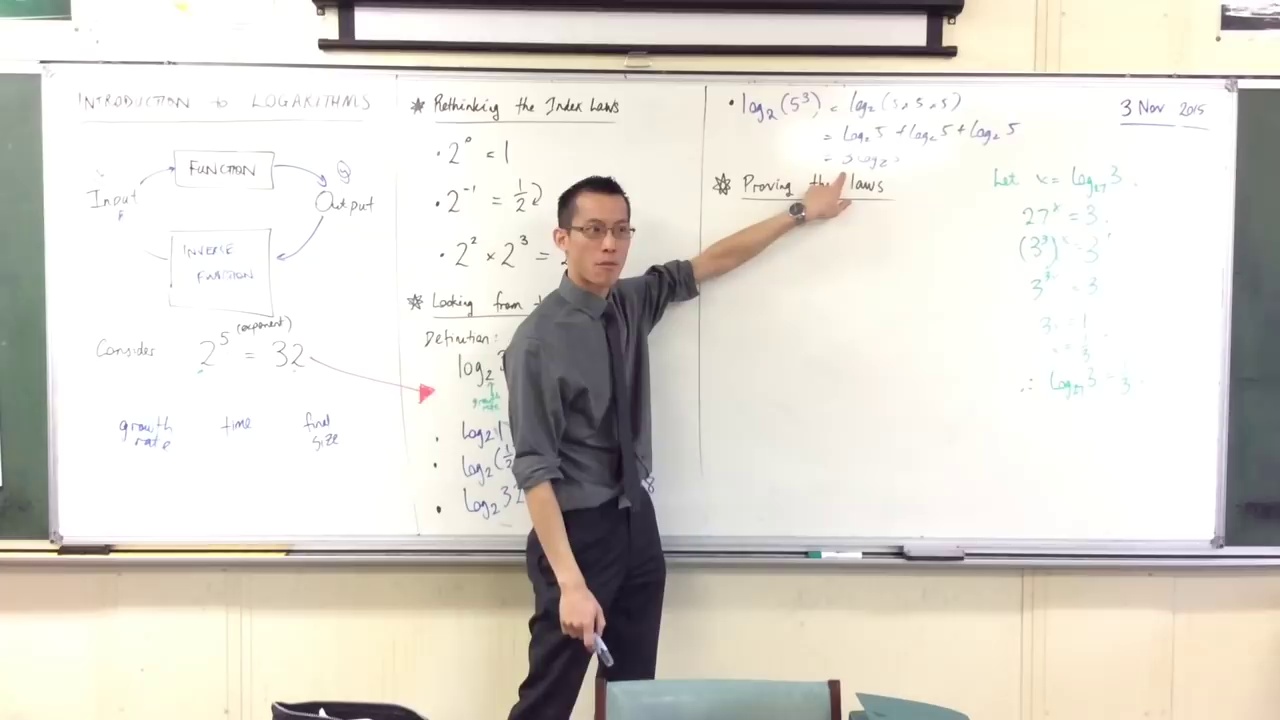 INTRODUCTION to LOGARITHMS
FUNCTION
Input
Output
INVERSE
FUNCTION
Consider 2⁵ = 32
(exponent)
growth rate
time
final size
Rethinking the Index Laws
• 2⁰ = 1
• 2⁻¹ = 1/2
• 2² × 2³ =
Looking from
Definition:
log₂ 3
growth rate
• log₂ 1
• log₂ (1/2
• log₂ 32
8
• log₂(5³) = log₂(5×5×5)
= log₂5 + log₂5 + log₂5
= 3log₂5
Proving the laws
3 Nov 2015
Let x = log₂₇3.
27ˣ = 3.
(3³)ˣ = 3¹
3³ˣ = 3
3x = 1
x = 1/3
∴ log₂₇3 = 1/3.